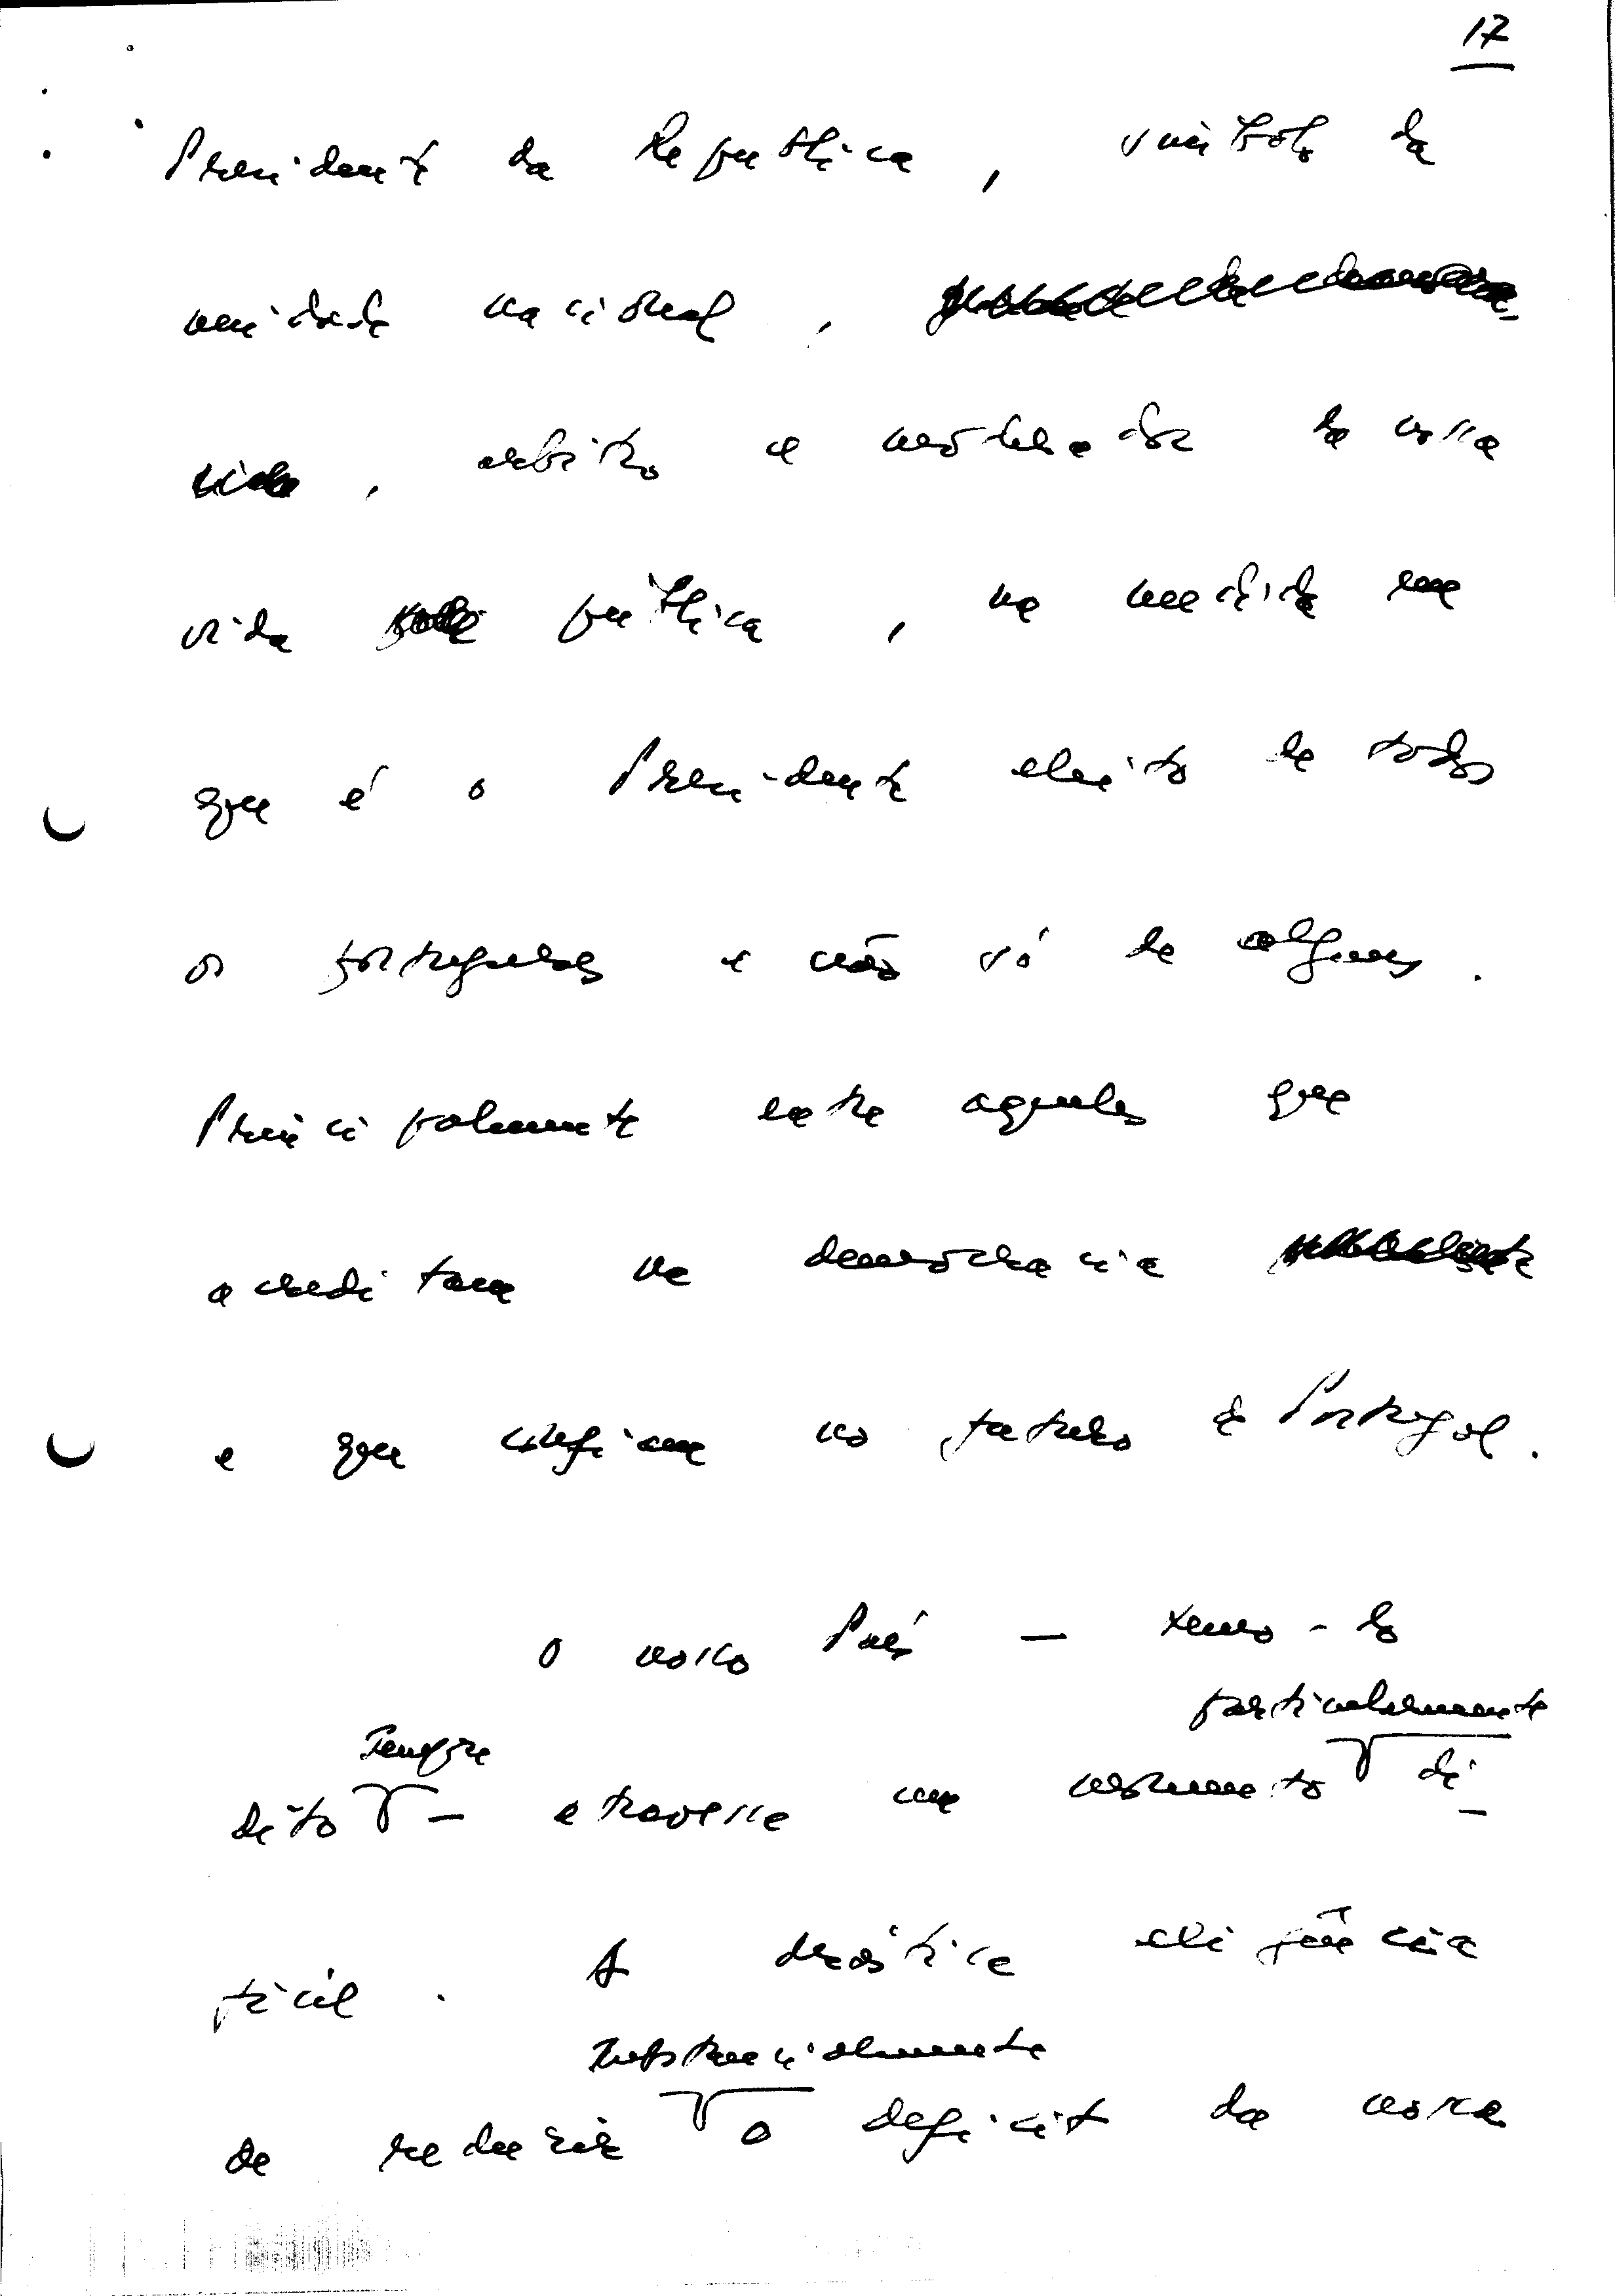 17
Presidente da República, símbolo da
unidade nacional,
, árbitro e moderador da nossa
vida pública, na medida em
que é o Presidente eleito de todos
os portugueses e não só de alguns.
Principalmente entre aqueles que
acreditam na democracia
e que confiam no futuro de Portugal.
O nosso País — temo-lo
particularmente
sempre
dito — atravessa um momento di-
fícil. A drástica exigência
substancialmente
de reduzir o deficit da nossa